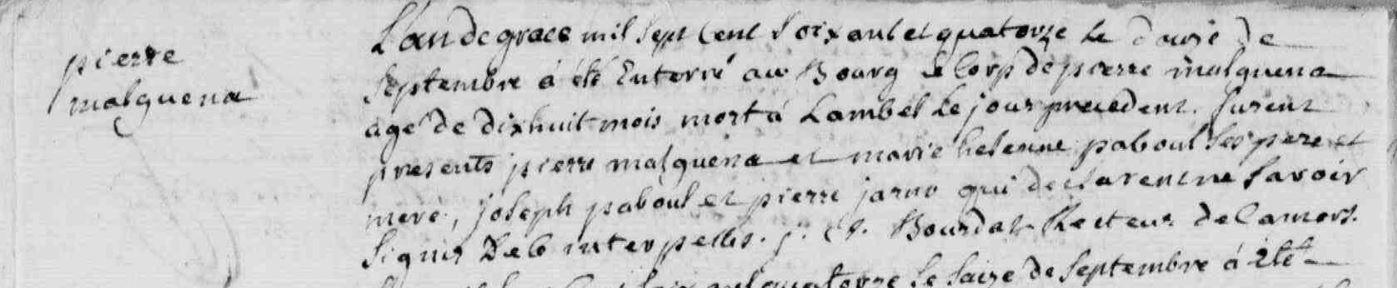 pierre
malquena
L'an de grace mil sept cent soixant et quatorze le douze de
septembre à été Enterré au Bourg le corp de pierre malquena
agé de dixhuit mois mort à Lambel le jour precedent. furent
presents pierre malquena et marie helenne paboul ses pere et
mere, joseph paboul et pierre jarno qui declarent ne savoir
signér De ce interpellés. j. Bourdat Recteur de Camors.
quatorze le saize de septembre à été